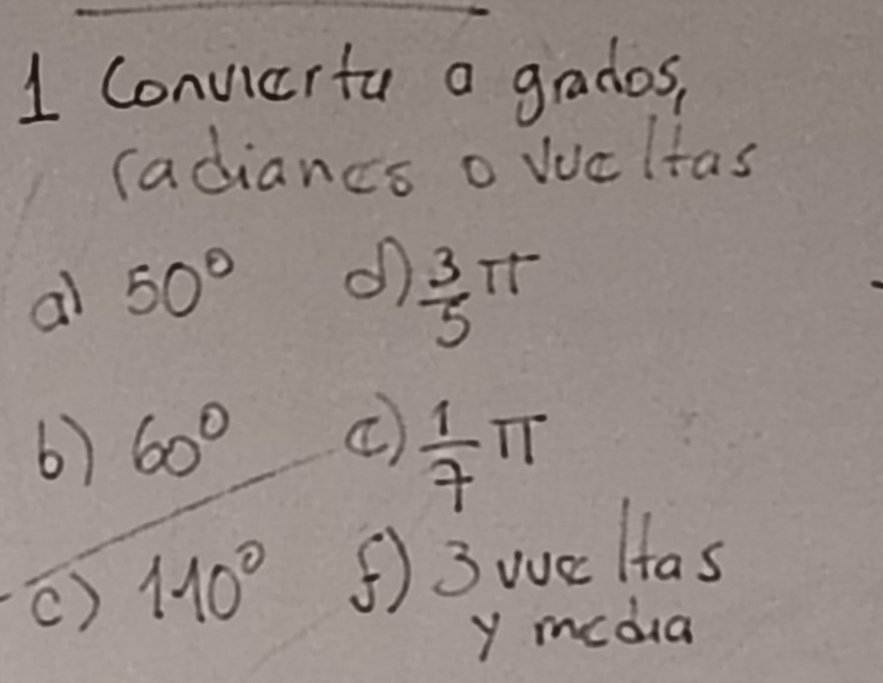 1 Convierta a grados,
radianes o vueltas
a) 50° d) 3/5 π
b) 60° e) 1/7 π
c) 110° f) 3 vueltas
y media